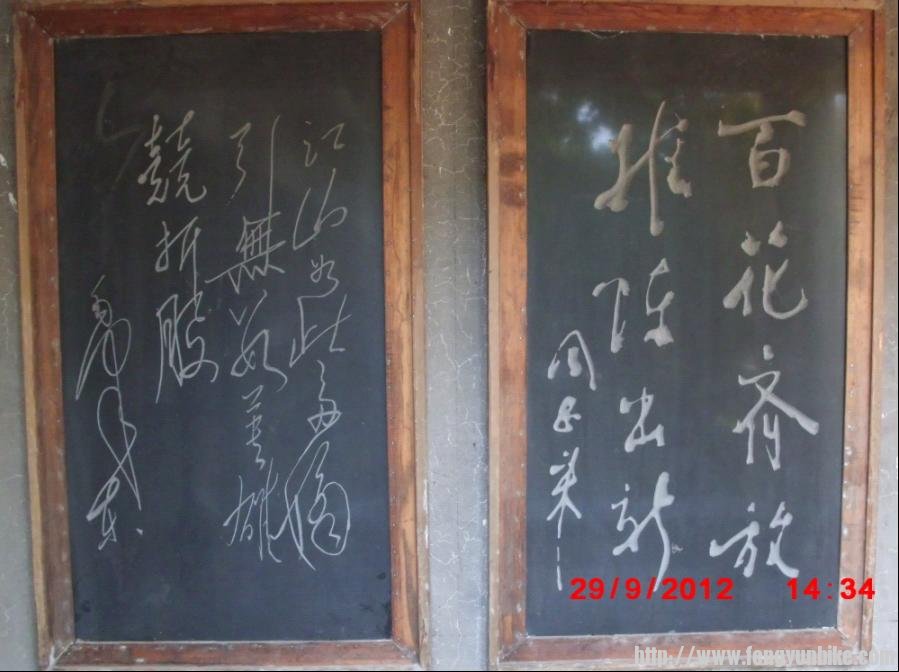 百花齐放
推陈出新
周恩来
江山如此多嬌
引無数英雄
競折腰
毛泽东
29/9/2012 14:34
http://www.fengyunbike.com